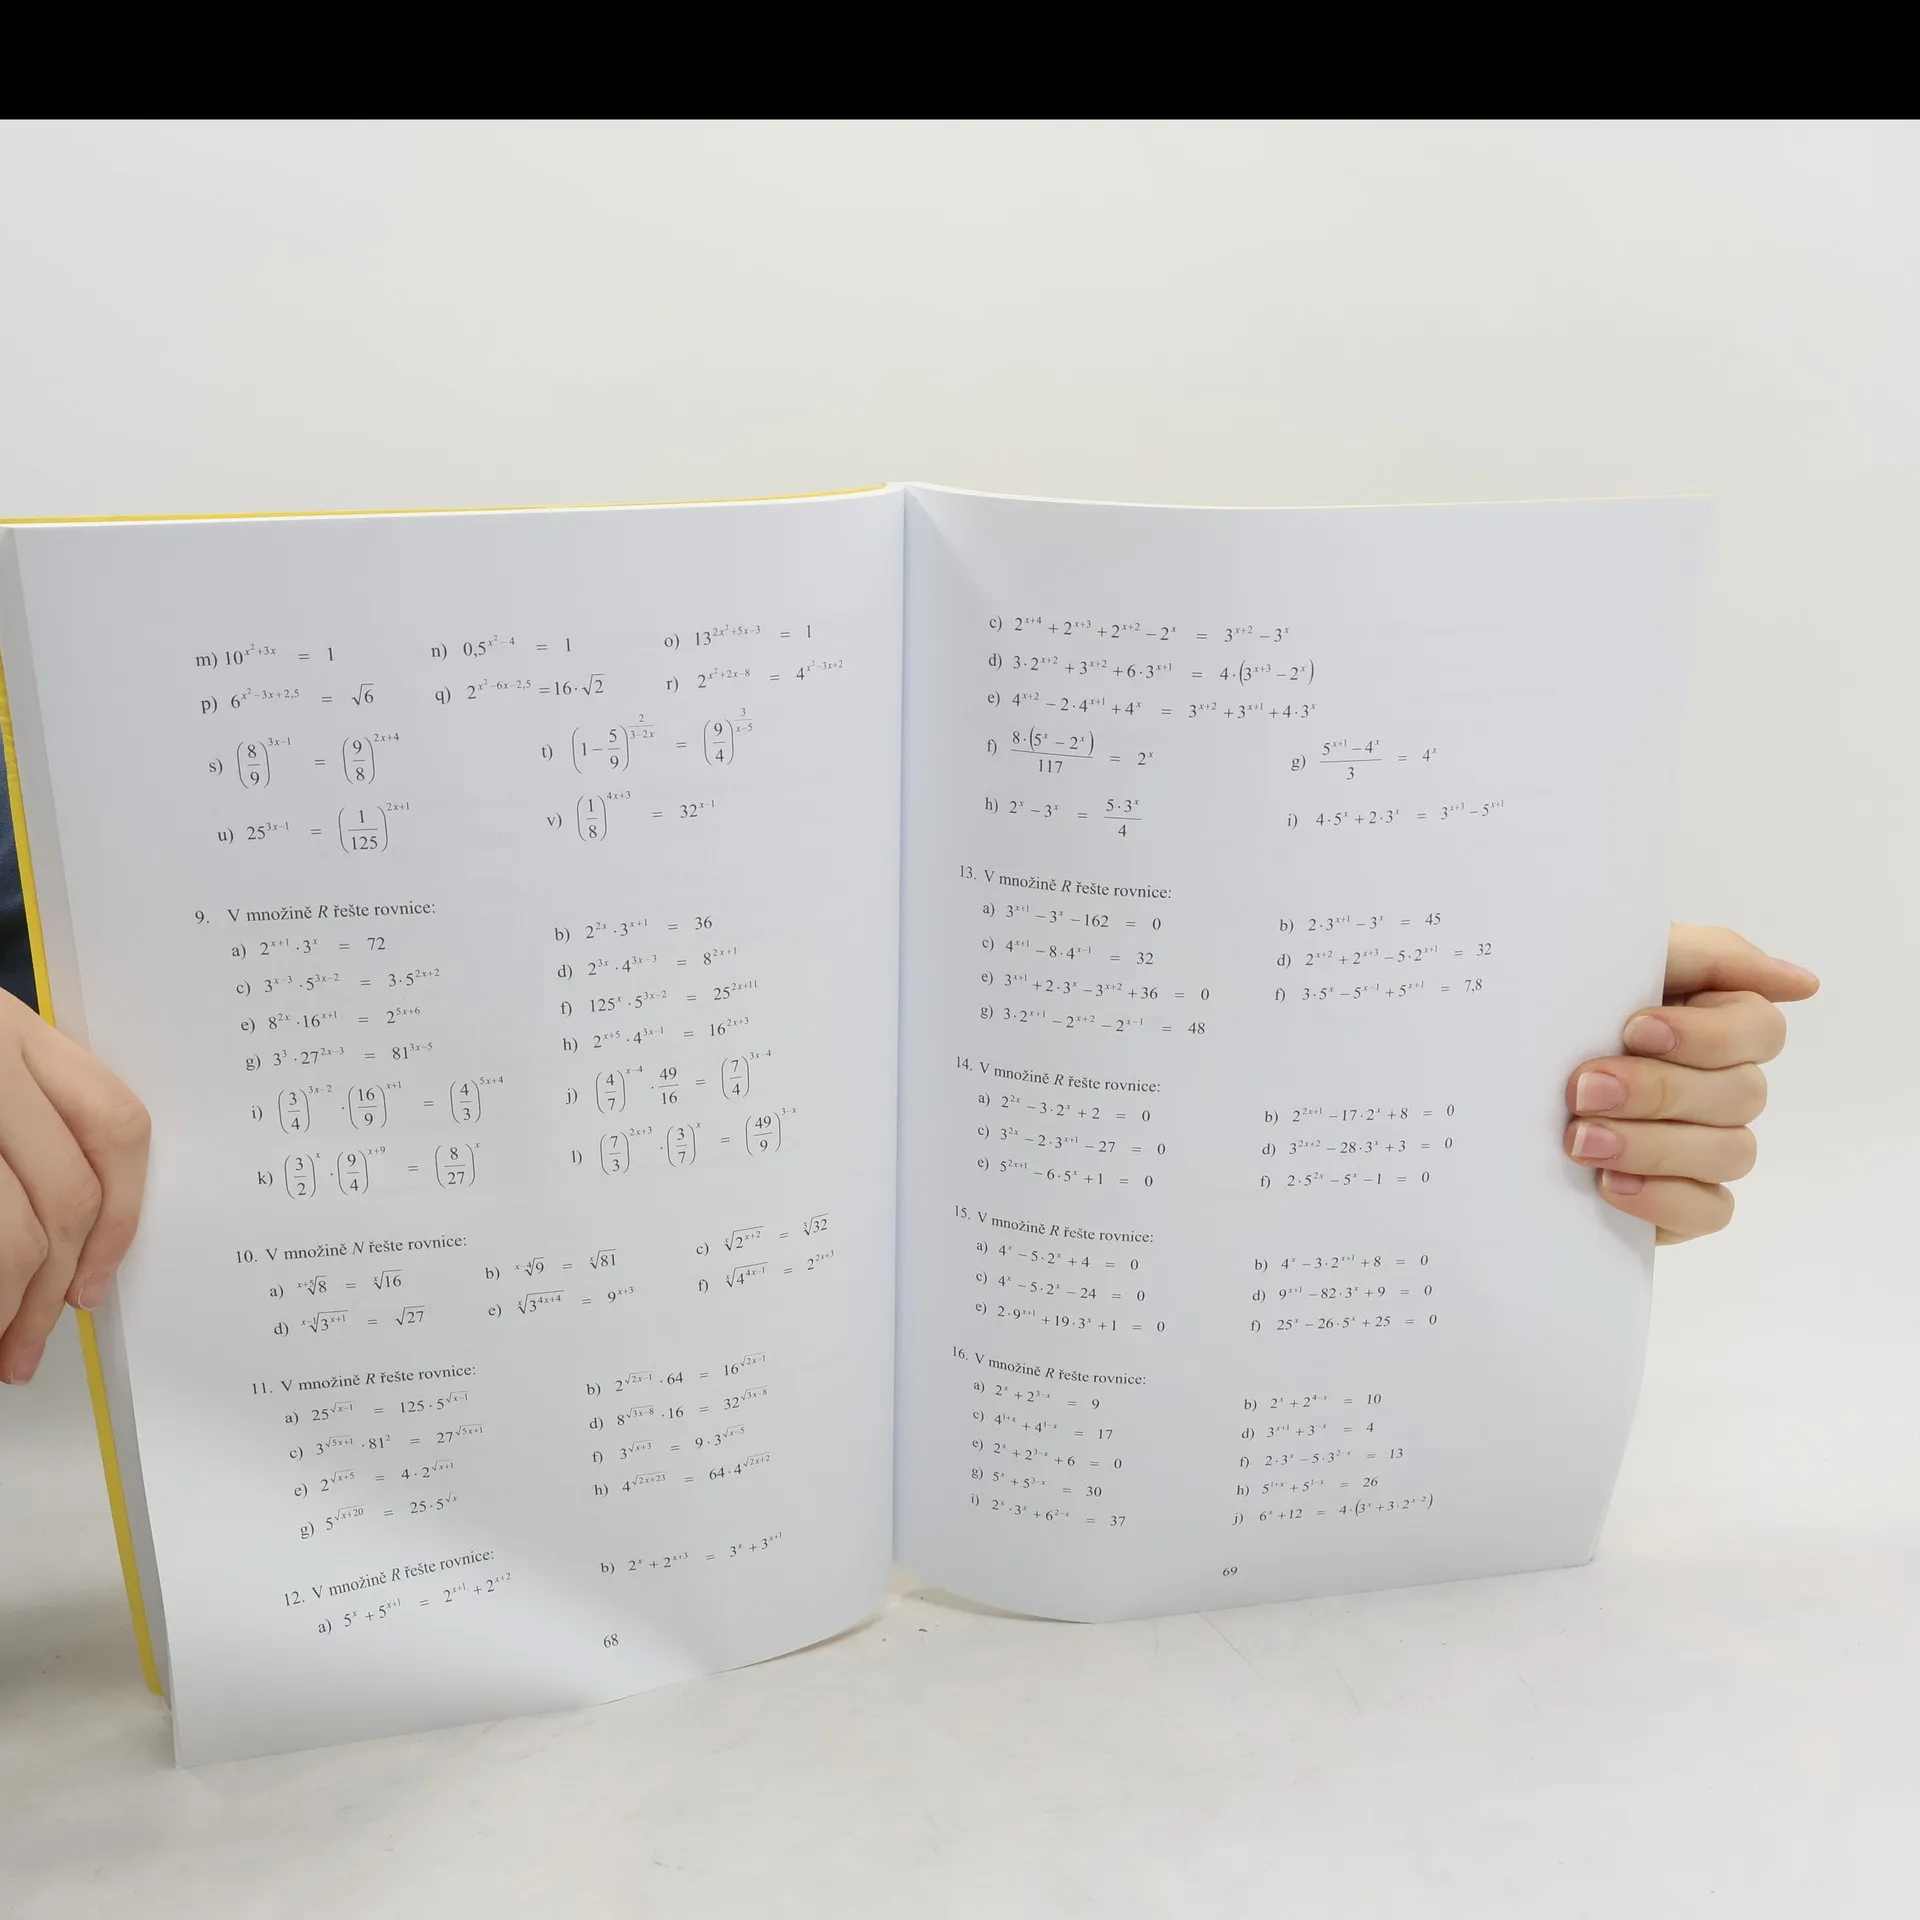 m) 10^{x²+3x} = 1 n) 0,5^{x²−4} = 1 o) 13^{2x²+5x−3} = 1
p) 6^{x²−3x+2,5} = √6 q) 2^{x²−6x−2,5} = 16·√2 r) 2^{x²+2x−8} = 4^{x²−3x+2}
s) (8/9)^{3x−1} = (9/8)^{2x+4} t) (1−5/9)^{2/(3−2x)} = (9/4)^{3/(x−5)}
u) 25^{3x−1} = (1/125)^{2x+1} v) (1/8)^{4x+3} = 32^{x−1}
9. V množině R řešte rovnice:
a) 2^{x+1}·3^x = 72 b) 2^{2x}·3^{x+1} = 36
c) 3^{x−3}·5^{3x−2} = 3·5^{2x+2} d) 2^{3x}·4^{3x−3} = 8^{2x+1}
e) 8^{2x}·16^{x+1} = 2^{5x+6} f) 125^x·5^{3x−2} = 25^{2x+11}
g) 3³·27^{2x−3} = 81^{3x−5} h) 2^{x+5}·4^{3x−1} = 16^{2x+3}
i) (3/4)^{3x−2}·(16/9)^{x+1} = (4/3)^{5x+4} j) (4/7)^{x−4}·49/16 = (7/4)^{3x−4}
k) (3/2)^x·(9/4)^{x+9} = (8/27)^x l) (7/3)^{2x+3}·(3/7)^x = (49/9)^{3−x}
10. V množině N řešte rovnice:
a) ^{x+5}√8 = ^x√16 b) ^{x−4}√9 = ^x√81 c) ^x√2^{x+2} = ^3√32
d) ^{x−1}√3^{x+1} = √27 e) ^x√3^{4x+4} = 9^{x+3} f) ^x√4^{4x−1} = 2^{2x+3}
11. V množině R řešte rovnice:
a) 25^{√(x−1)} = 125·5^{√(x−1)} b) 2^{√(2x−1)}·64 = 16^{√(2x−1)}
c) 3^{√(5x+1)}·81² = 27^{√(5x+1)} d) 8^{√(3x−8)}·16 = 32^{√(3x−8)}
e) 2^{√(x+5)} = 4·2^{√(x+1)} f) 3^{√(x+3)} = 9·3^{√(x−5)}
g) 5^{√(x+20)} = 25·5^{√x} h) 4^{√(2x+23)} = 64·4^{√(2x+2)}
12. V množině R řešte rovnice:
a) 5^x + 5^{x+1} = 2^{x+1} + 2^{x+2} b) 2^x + 2^{x+3} = 3^x + 3^{x+1}
68
c) 2^{x+4} + 2^{x+3} + 2^{x+2} − 2^x = 3^{x+2} − 3^x
d) 3·2^{x+2} + 3^{x+2} + 6·3^{x+1} = 4·(3^{x+3} − 2^x)
e) 4^{x+2} − 2·4^{x+1} + 4^x = 3^{x+2} + 3^{x+1} + 4·3^x
f) 8·(5^x − 2^x)/117 = 2^x g) (5^{x+1} − 4^x)/3 = 4^x
h) 2^x − 3^x = 5·3^x/4 i) 4·5^x + 2·3^x = 3^{x+3} − 5^{x+1}
13. V množině R řešte rovnice:
a) 3^{x+1} − 3^x − 162 = 0 b) 2·3^{x+1} − 3^x = 45
c) 4^{x+1} − 8·4^{x−1} = 32 d) 2^{x+2} + 2^{x+3} − 5·2^{x+1} = 32
e) 3^{x+1} + 2·3^x − 3^{x+2} + 36 = 0 f) 3·5^x − 5^{x−1} + 5^{x+1} = 7,8
g) 3·2^{x+1} − 2^{x+2} − 2^{x−1} = 48
14. V množině R řešte rovnice:
a) 2^{2x} − 3·2^x + 2 = 0 b) 2^{2x+1} − 17·2^x + 8 = 0
c) 3^{2x} − 2·3^{x+1} − 27 = 0 d) 3^{2x+2} − 28·3^x + 3 = 0
e) 5^{2x+1} − 6·5^x + 1 = 0 f) 2·5^{2x} − 5^x − 1 = 0
15. V množině R řešte rovnice:
a) 4^x − 5·2^x + 4 = 0 b) 4^x − 3·2^{x+1} + 8 = 0
c) 4^x − 5·2^x − 24 = 0 d) 9^{x+1} − 82·3^x + 9 = 0
e) 2·9^{x+1} + 19·3^x + 1 = 0 f) 25^x − 26·5^x + 25 = 0
16. V množině R řešte rovnice:
a) 2^x + 2^{3−x} = 9 b) 2^x + 2^{4−x} = 10
c) 4^{1+x} + 4^{1−x} = 17 d) 3^{x+1} + 3^{−x} = 4
e) 2^x + 2^{3−x} + 6 = 0 f) 2·3^x − 5·3^{2−x} = 13
g) 5^x + 5^{3−x} = 30 h) 5^{1+x} + 5^{1−x} = 26
i) 2^x·3^x + 6^{2−x} = 37 j) 6^x + 12 = 4·(3^x + 3·2^{x−2})
69